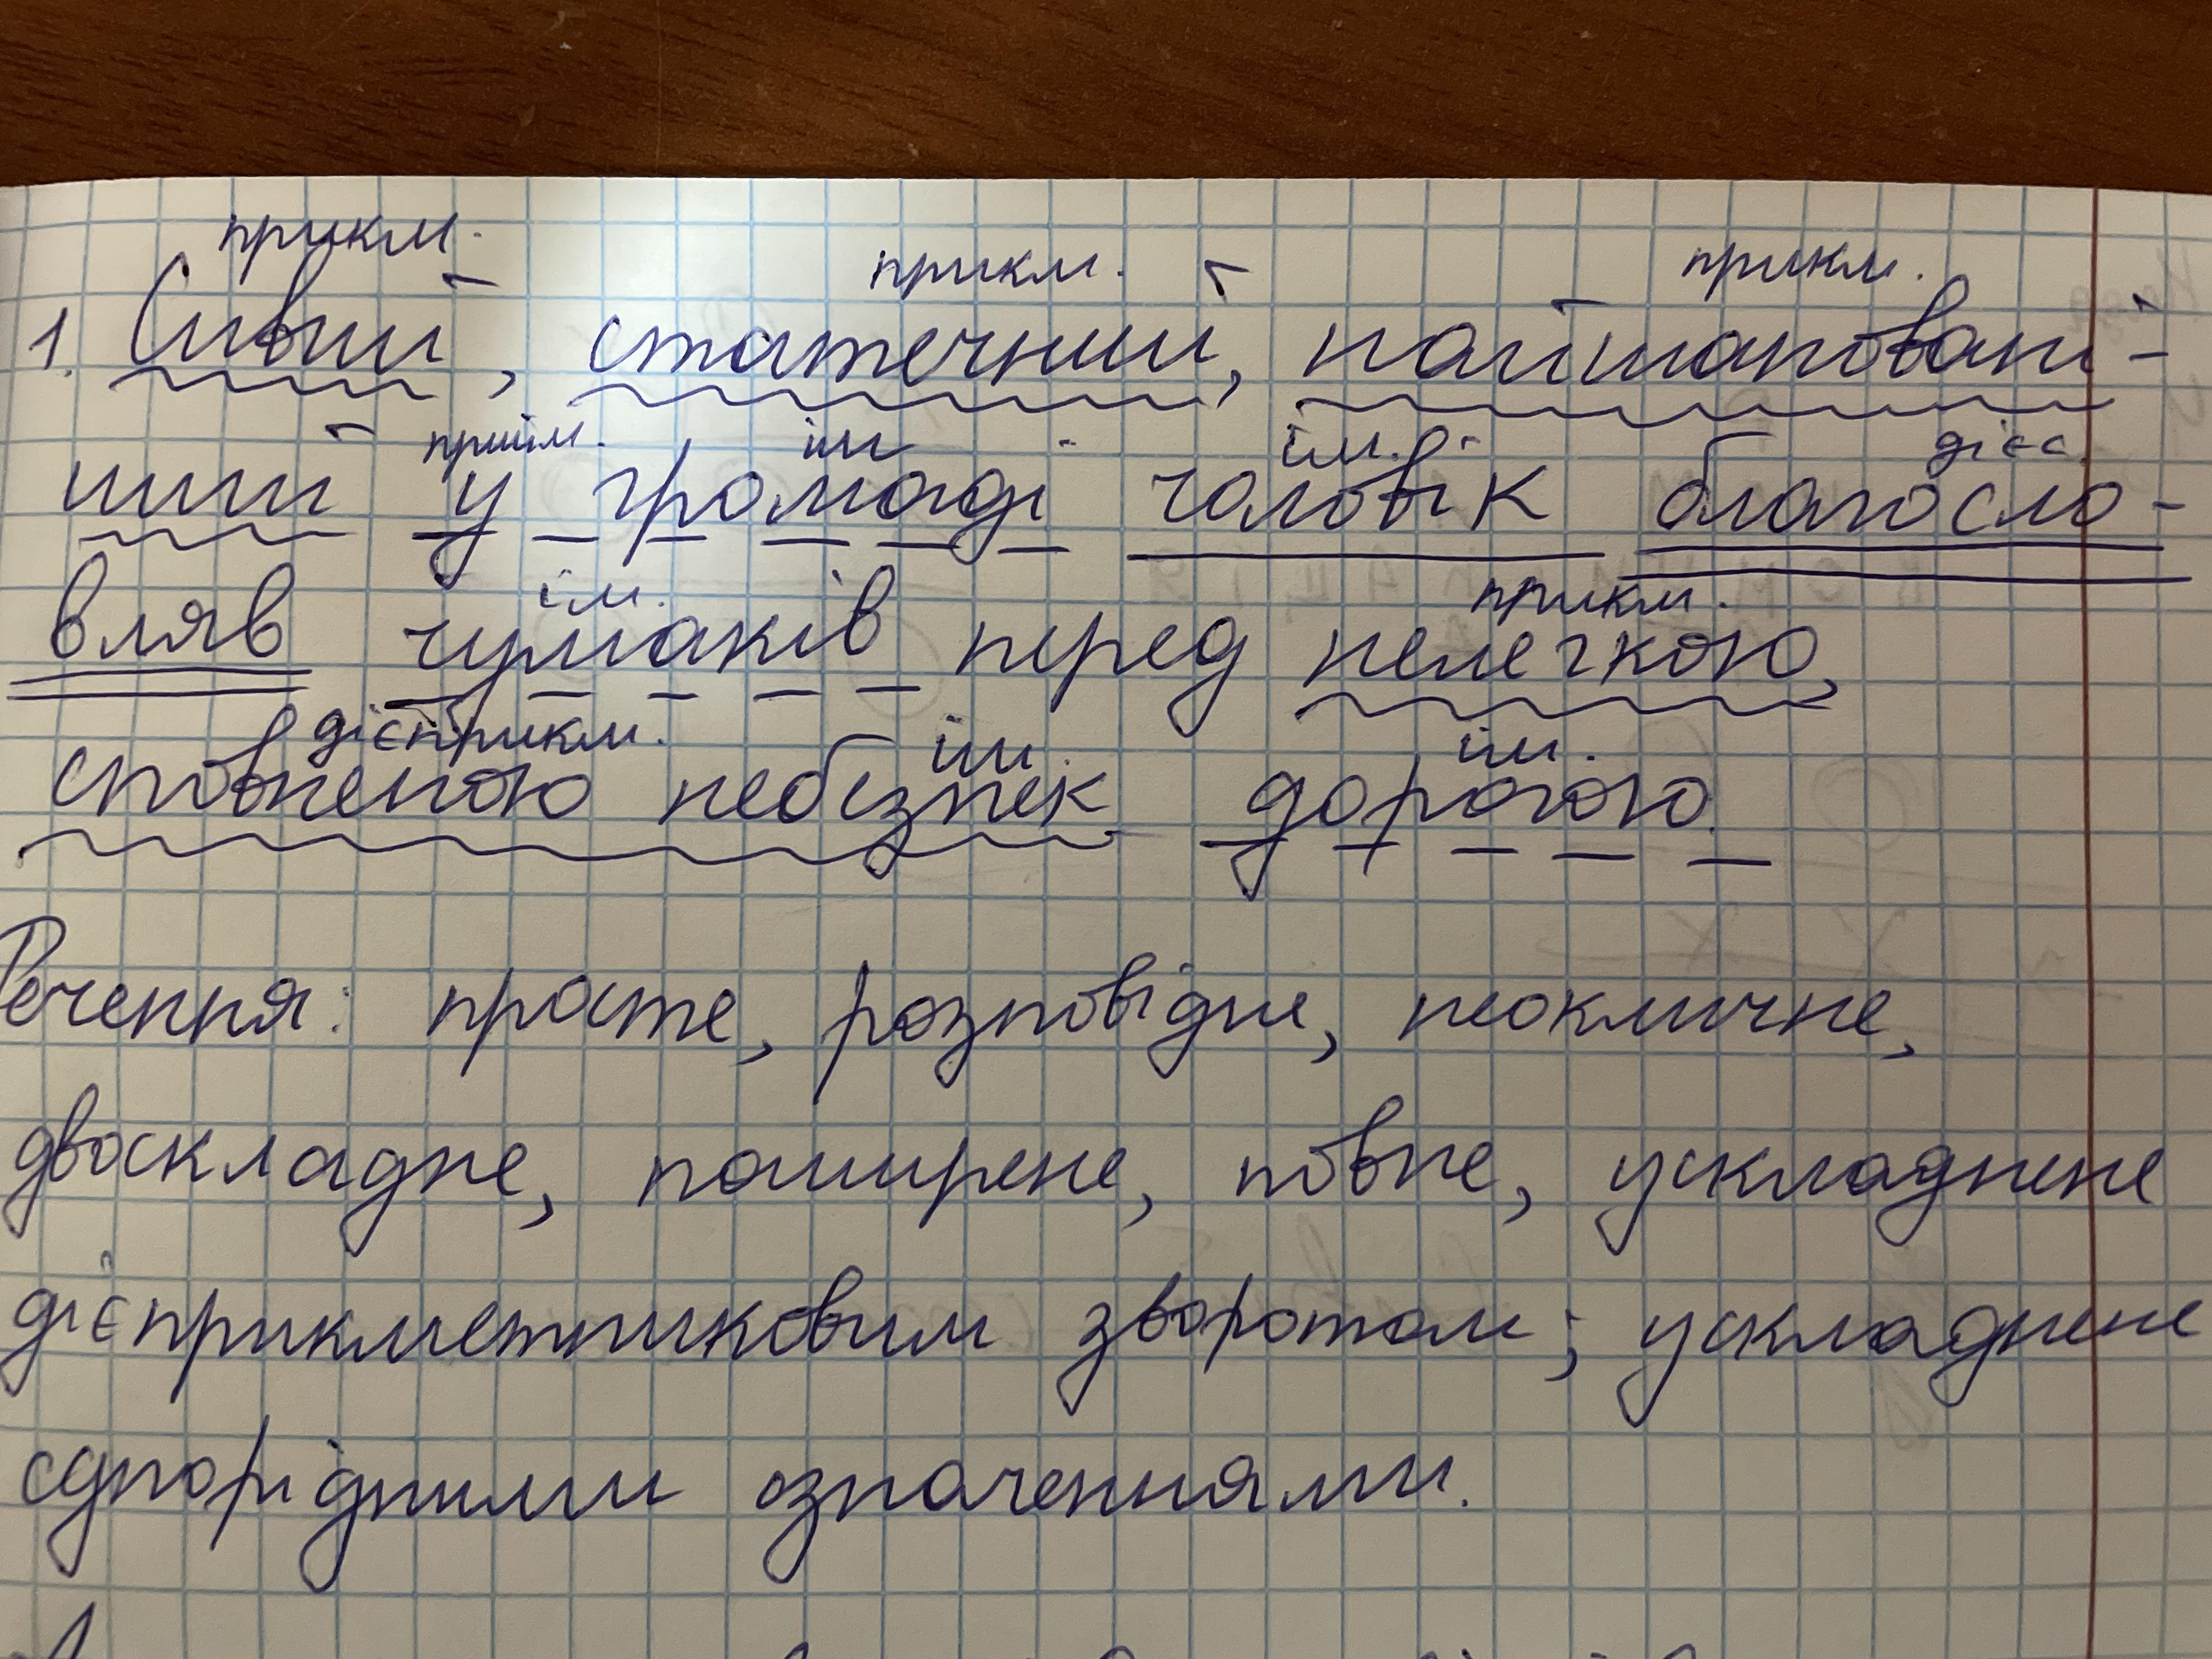 прикм. прикм. прикм.
1. Сивий, статечний, найшановані-
прийм. ім. ім. дієс.
ший у громаді чоловік благосло-
ім. прикм.
вляв чумаків перед нелегкою,
дієприкм. ім. ім.
сповненою небезпек дорогою.
Речення: просте, розповідне, неокличне,
двоскладне, поширене, повне, ускладнене
дієприкметниковим зворотом; ускладнене
однорідними означеннями.